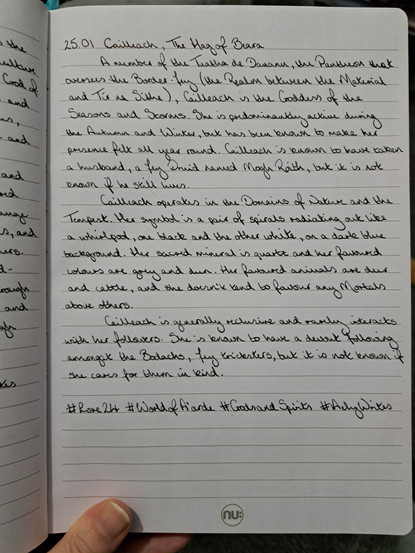 25.01 Cailleach, The Hag of Beara
A member of the Tuatha de Danann, the Pantheon that
oversees the Border-Fey (the Realm between the Material
and Tír na Sìthe), Cailleach is the Goddess of the
Seasons and Storms. She is predominantly active during
the Autumn and Winter, but has been known to make her
presence felt all year round. Cailleach is known to have taken
a husband, a fey Druid named Mogh Roith, but it is not
known if he still lives.
Cailleach operates in the Domains of Nature and the
Tempest. Her symbol is a pair of spirals radiating out like
a whirlpool, one black and the other white, on a dark blue
background. Her sacred mineral is quartz and her favoured
colours are grey and dun. Her favoured animals are deer
and cattle, and she doesn't tend to favour any Mortals
above others.
Cailleach is generally reclusive and rarely interacts
with her followers. She is known to have a devout following
amongst the Bodachs, fey tricksters, but it is not known if
she cares for them in kind.
#Lore24 #WorldofA'arde #GodsandSpirits #AchyWrites
nu: